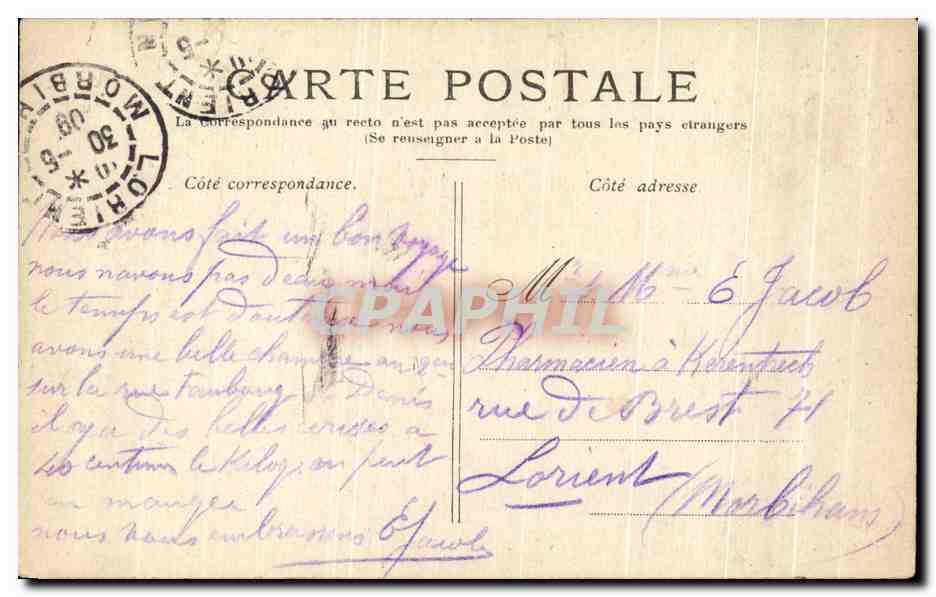 CARTE POSTALE
La Correspondance au recto n'est pas acceptée par tous les pays etrangers
(Se renseigner a la Poste)
Côté correspondance.
Côté adresse
LORIENT
MORBIHAN
30 -5
09
LORIENT
Nous avons fait un bon voyage
nous navons pas d'eau mais
le temps est douteux nous
avons une belle chambre au
sur la rue Faubourg St Denis
il y a des belles cerises a
40 centimes le Kilog on peut
en manger
nous vous embrassons E Jacob
Mr & Mme E Jacob
Pharmacien à Kerentrech
rue de Brest 71
Lorient (Morbihan)
CPAPHIL